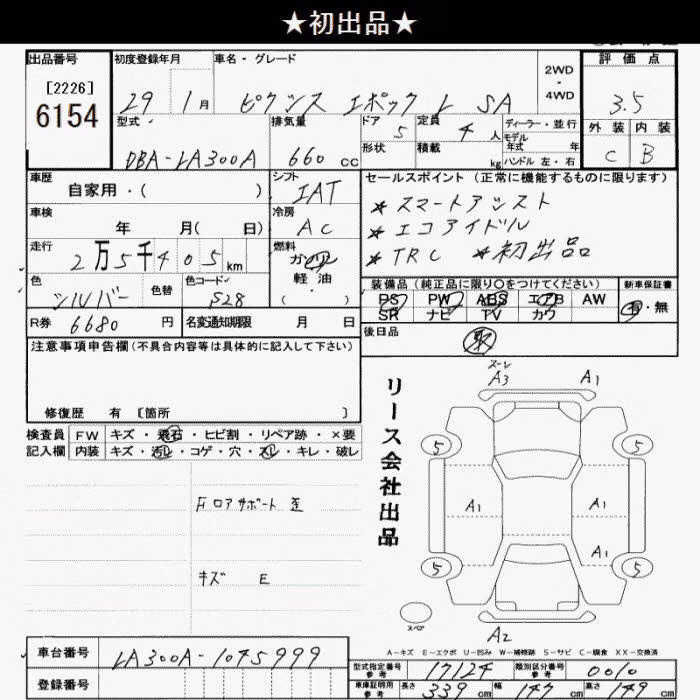 ★初出品★
出品番号
[2226]
6154
初度登録年月
29 1月
車名・グレード
ピクシス エポック L SA
2WD
・
4WD
評価点
3.5
外装 内装
C B
型式
DBA-LA300A
排気量
660 cc
ドア 5
形状
定員 4 人
積載 kg
ディーラー・並行
モデル
年式 年
ハンドル 左・右
車歴
自家用・( )
シフト
IAT
セールスポイント (正常に機能するものに限ります)
★スマートアシスト
★エコアイドル
★TRC ★初出品
車検
年 月( 日)
冷房
AC
走行
2万5千405km
燃料
ガソリン
・
軽油
・
( )
色
シルバー
色替
色コード
S28
装備品 (純正品に限り○をつけてください)
PS PW ABS エアB AW
SR ナビ TV カワ
新車保証書
有・無
R券 6680 円
名変通知期限 月 日
後日品
取
注意事項申告欄(不具合内容等は具体的に記入して下さい)
修復歴 有 [箇所 ]
検査員
記入欄
FW キズ・飛石・ヒビ割・リペア跡・×要
内装 キズ・汚レ・コゲ・穴・スレ・キレ・破レ
Fロアサポート 歪
キズ E
リース会社出品
スーレ
A3 A1
5 5
A1 A1
A1
5 5
スペア
A2
A-キズ E-エクボ U-凹み W-補修跡 S-サビ C-腐食 XX-交換済
車台番号 LA300A-1045999
登録番号
型式指定番号
参考
17124
類別区分番号
参考
0010
車庫証明用
参考
長さ 339 cm 幅 147 cm 高さ 149 cm